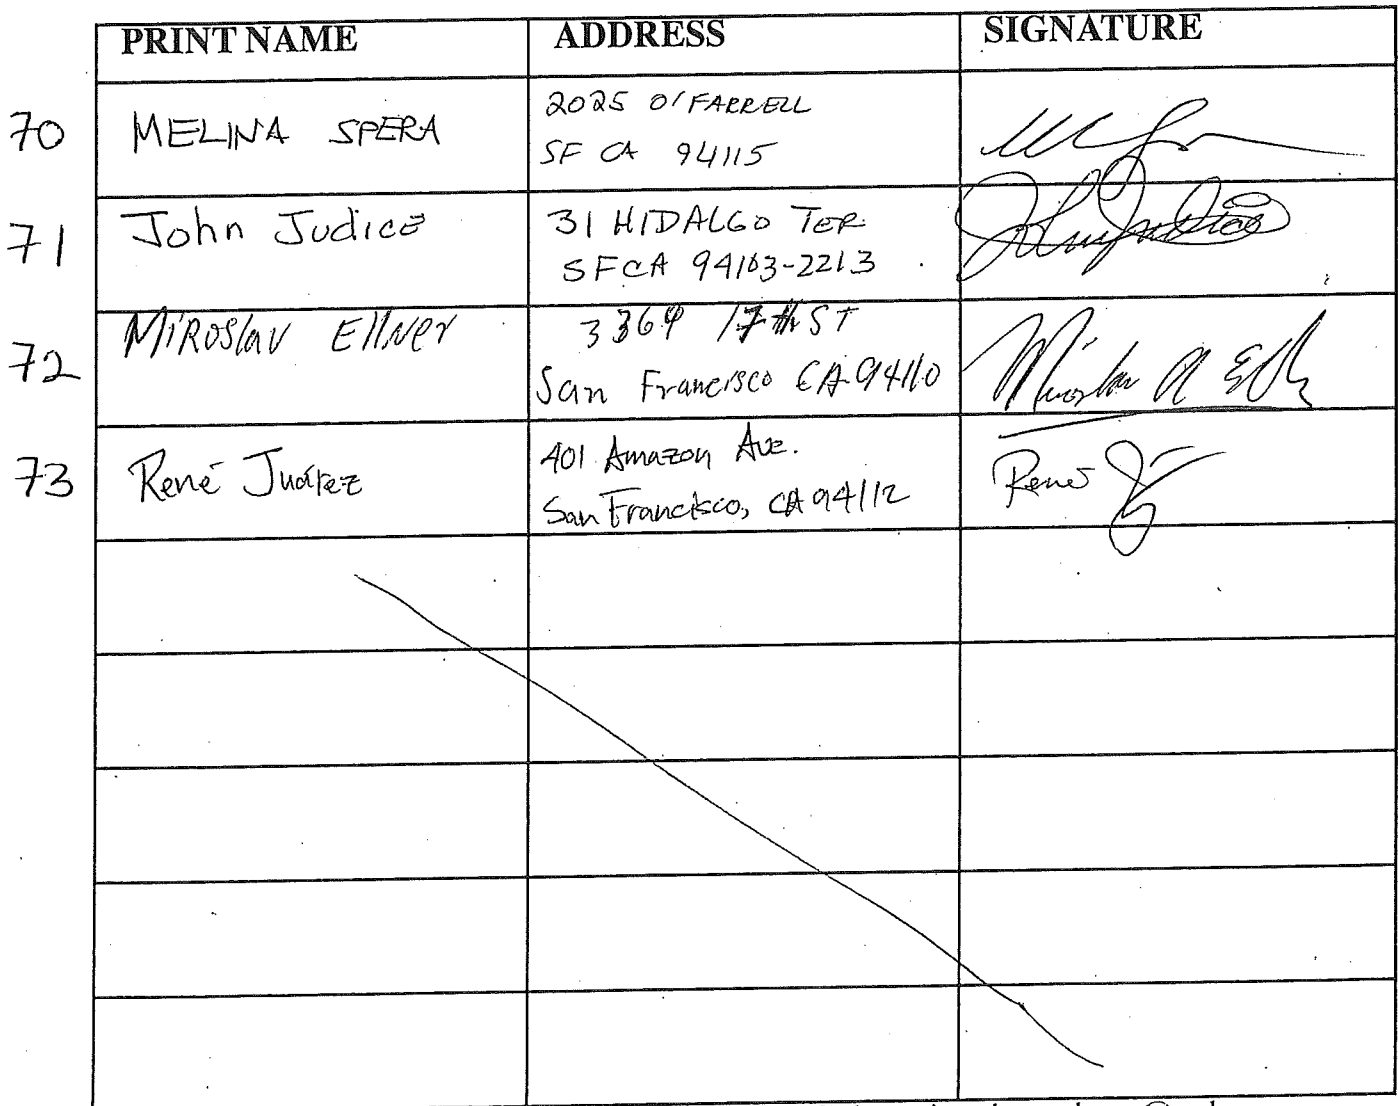 PRINT NAME ADDRESS SIGNATURE
70 MELINA SPERA 2025 O'FARRELL
SF CA 94115
71 John Judice 31 HIDALGO TER.
SF CA 94103-2213
John Judice
72 Miroslav Ellner 3364 17th ST
San Francisco CA 94110
73 René Juárez 401 Amazon Ave.
San Francisco, CA 94112
René